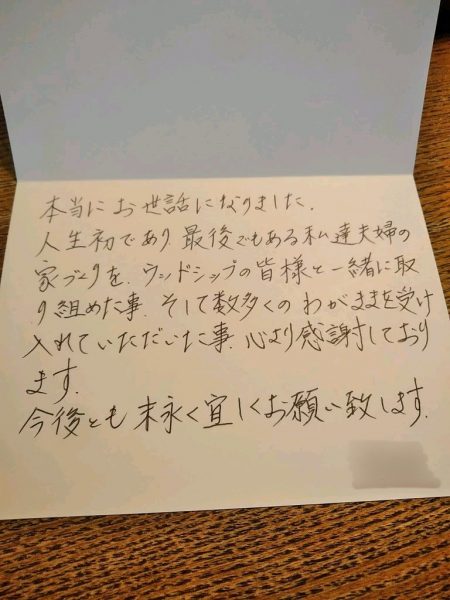 本当にお世話になりました.
人生初であり最後でもある私達夫婦の
家づくりを、ウッドシップの皆様と一緒に取
り組めた事、そして数多くのわがままを受け
入れていただいた事、心より感謝しており
ます.
今後とも末永く宜しくお願い致します.